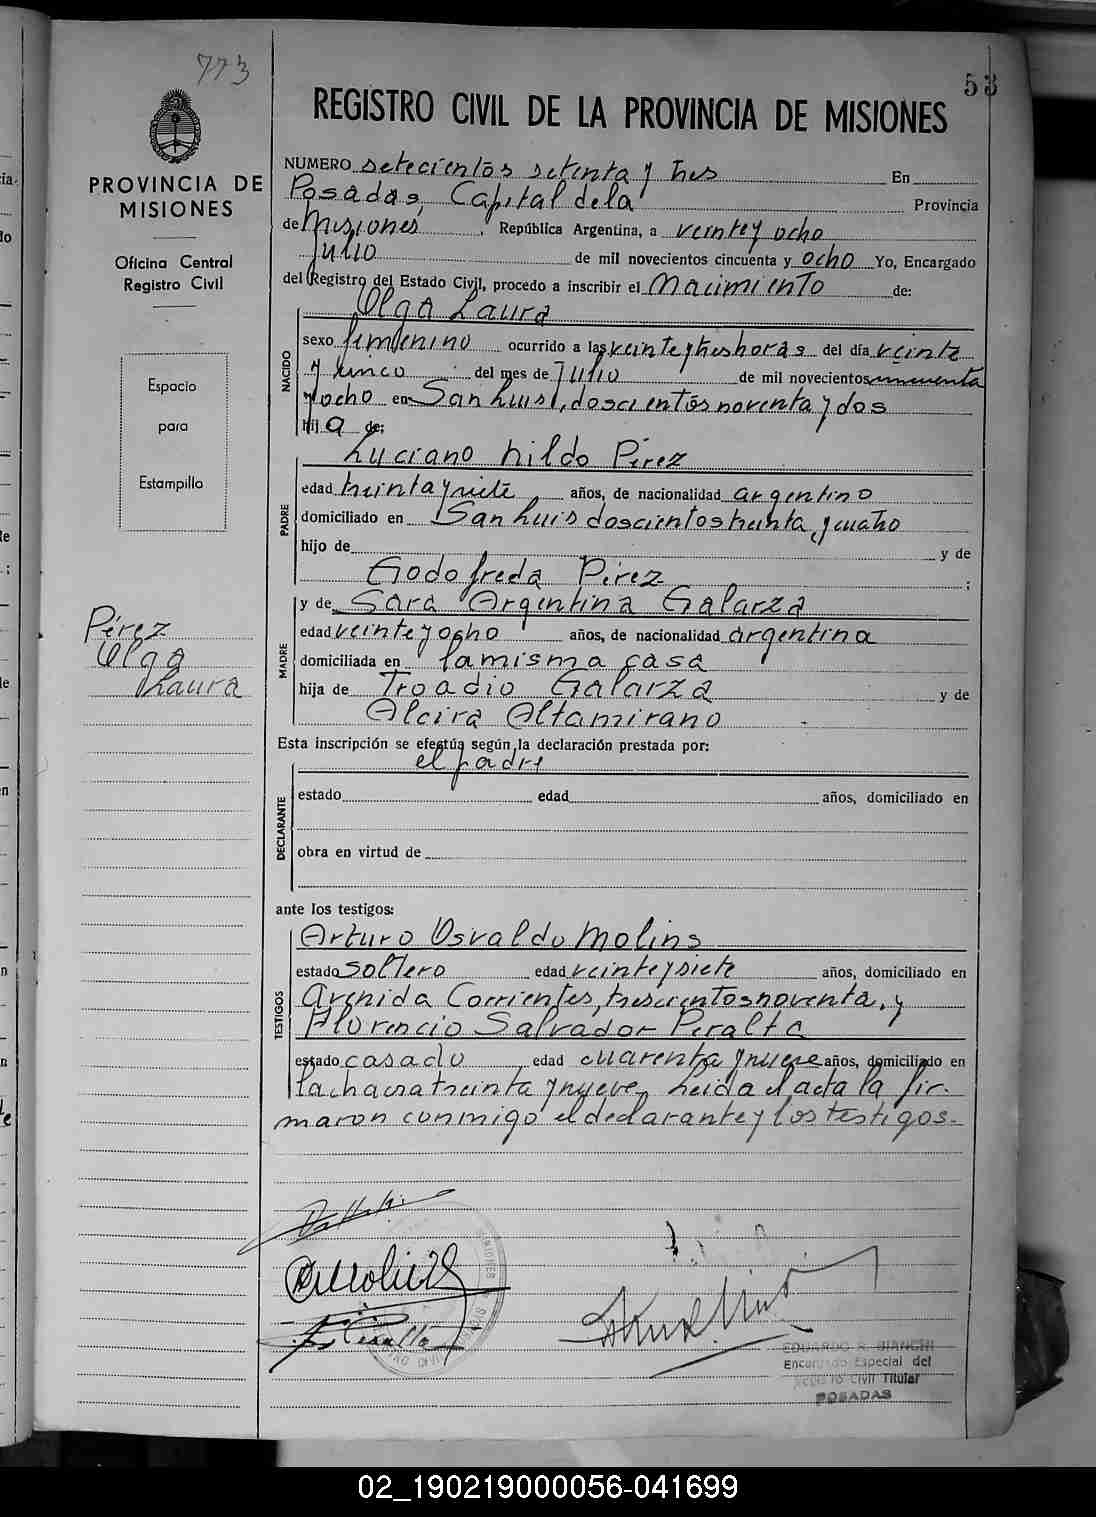 773
53
REGISTRO CIVIL DE LA PROVINCIA DE MISIONES
PROVINCIA DE
MISIONES
Oficina Central
Registro Civil
Espacio
para
Estampilla
Pérez
Olga
Laura
NUMERO setecientos setenta y tres En
Posadas, Capital de la Provincia
de Misiones, República Argentina, a veinte y ocho
Julio de mil novecientos cincuenta y ocho Yo, Encargado
del Registro del Estado Civil, procedo a inscribir el Nacimiento de:
Olga Laura
NACIDO
sexo femenino ocurrido a las veinte y tres horas del día veinte
y cinco del mes de Julio de mil novecientos cincuenta
y ocho en San Luis, doscientos noventa y dos
hija de:
Luciano Nildo Pérez
PADRE
edad treinta y siete años, de nacionalidad argentino
domiciliado en San Luis doscientos treinta y cuatro
hijo de y de
Godofreda Pérez ;
y de Sara Argentina Galarza
MADRE
edad veinte y ocho años, de nacionalidad argentina
domiciliada en la misma casa
hija de Troadio Galarza y de
Alcira Altamirano
Esta inscripción se efectúa según la declaración prestada por:
el padre
DECLARANTE
estado edad años, domiciliado en
obra en virtud de
ante los testigos:
TESTIGOS
Arturo Osvaldo Molins
estado soltero edad veinte y siete años, domiciliado en
Avenida Corrientes, trescientos noventa, y
Florencio Salvador Peralta
estado casado, edad cuarenta y nueve años, domiciliado en
la chacra treinta y nueve, Leida el acta la fir-
maron conmigo el declarante y los testigos.-
Peralta
EDUARDO R. BIANCHI
Encargado Especial del
Registro Civil Titular
POSADAS
02_190219000056-041699